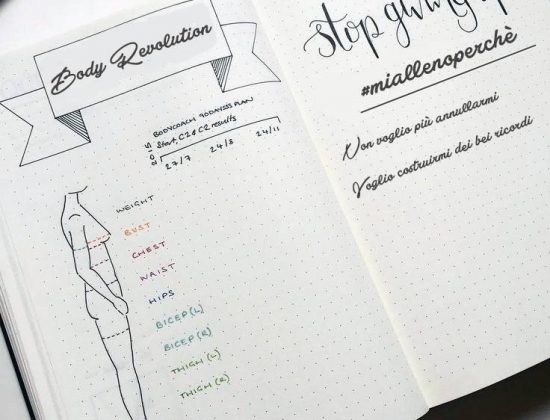 Body Revolution
BODYCOACH 90DAYSSS PLAN
Start, C2 & C2 results
27/7 24/8 24/11
WEIGHT
BUST
CHEST
WAIST
HIPS
BICEP (L)
BICEP (R)
THIGH (L)
THIGH (R)
stop giving
#miallenoperchè
Non voglio più annullarmi
Voglio costruirmi dei bei ricordi